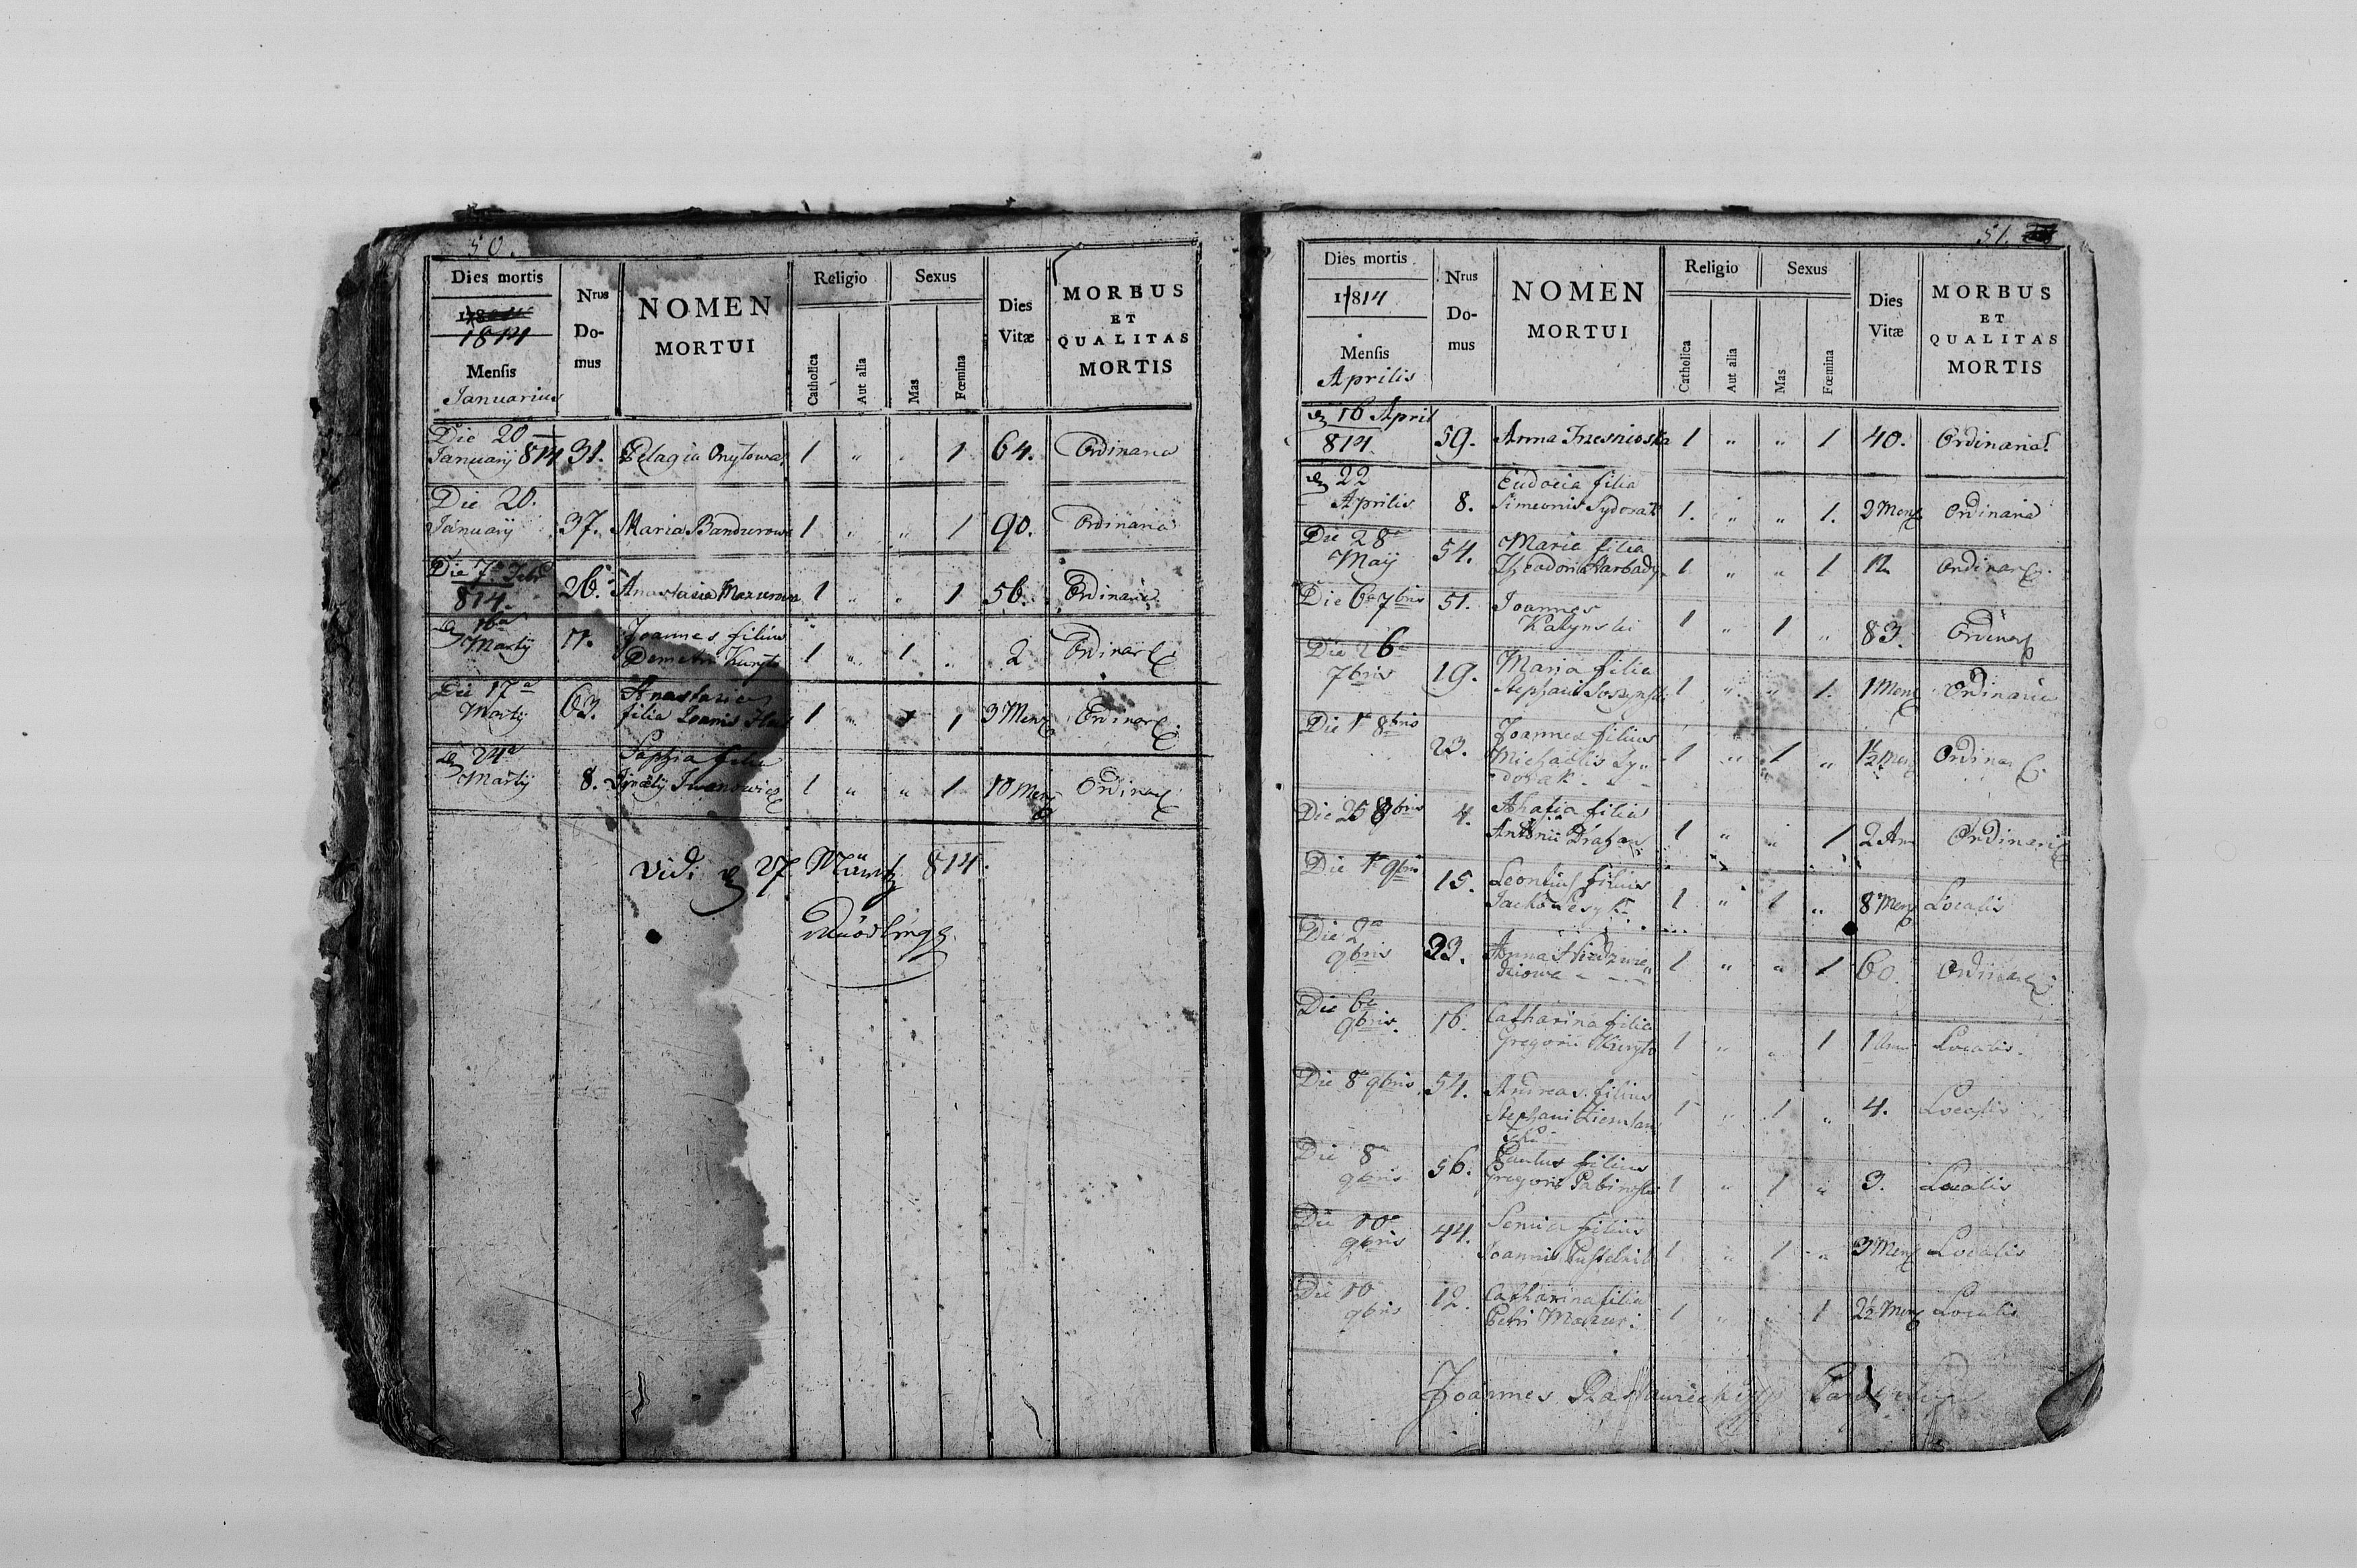 50.
Dies mortis
1814
Menſis
Januarius
Nrus
Do-
mus
NOMEN
MORTUI
Religio
Catholica
Aut alia
Sexus
Mas
Fœmina
Dies
Vitæ
MORBUS
ET
QUALITAS
MORTIS
Die 20
Januarij 814 31. Pelagia 1 " . 1 64. Ordinaria
Die 20.
Januarij 37. Maria Bandurowa 1 " " 1 90. Ordinaria
Die 7a Febr
814. 26. Anastasia Mazurowa 1 " " 1 56. Ordinaria
16a Joannes filius
Martij 11. Demetri Kuryło 1 " 1 " 2 Ordinar
Die 17a Anastasia
Martij 63. filia Joannis 1 " 1 3 Mens Ordinar
24a Sophia filia
Martij 8. Iwanowicz 1 " " 1 10 Mens Ordinar
Vidi 27 Martz 814.
51.
Dies mortis
1814
Menſis
Aprilis
Nrus
Do-
mus
NOMEN
MORTUI
Religio
Catholica
Aut alia
Sexus
Mas
Fœmina
Dies
Vitæ
MORBUS
ET
QUALITAS
MORTIS
16 April
814. 59. Anna 1 " " 1 40. Ordinaria
22 Eudocia filia
Aprilis 8. Simeonis Sydorak 1. " " 1. 2 Mens Ordinaria
Die 28a Maria filia
Maij 54. Theodori Harbady 1 " " 1 12 Ordinar
Die 6a 7bris 51. Joannes
Kalynski 1 " 1 " 83. Ordinar
Die 26a Maria filia
7bris 19. Stephani 1 " " 1. 1 Mens Ordinaria
Die 1a 8bris Joannes filius
23. Michaelis Sy"
dorak 1 " 1 " 1½ Mens Ordinar
Die 25 8bris 4. Ahafia filia
Antonii Drahan 1 " " 1 2 An Ordinaria
Die 1a 9bris 15. Leontius filius
1 " 1 " 8 Mens Localis
Die 2a
9bris 33. Anna Niedzwie"
dziowa 1 " " 1 60. Ordinar
Die 6a Catharina filia
9bris. 16. Gregorii Kuryło 1 " " 1 1 Localis.
Die 8a 9bris 54. Andreas filius
Stephani 1 " 1 " 4. Localis
Die 8a Paulus filius
9bris 56. Gregorii 1 " 1 " 3. Localis
Die 10a filius
9bris 44. Joannis Pustelnik 1 " 1 " 3 Mens Localis
Die 10 Catharina filia
9bris 12. Petri Mazur 1 " " 1 2½ Mens Localis
Joannes